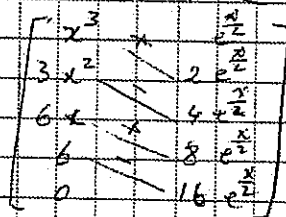 x³ + e^{x/2}
3x² - 2e^{x/2}
6x + 4e^{x/2}
6 - 8e^{x/2}
0 16e^{x/2}